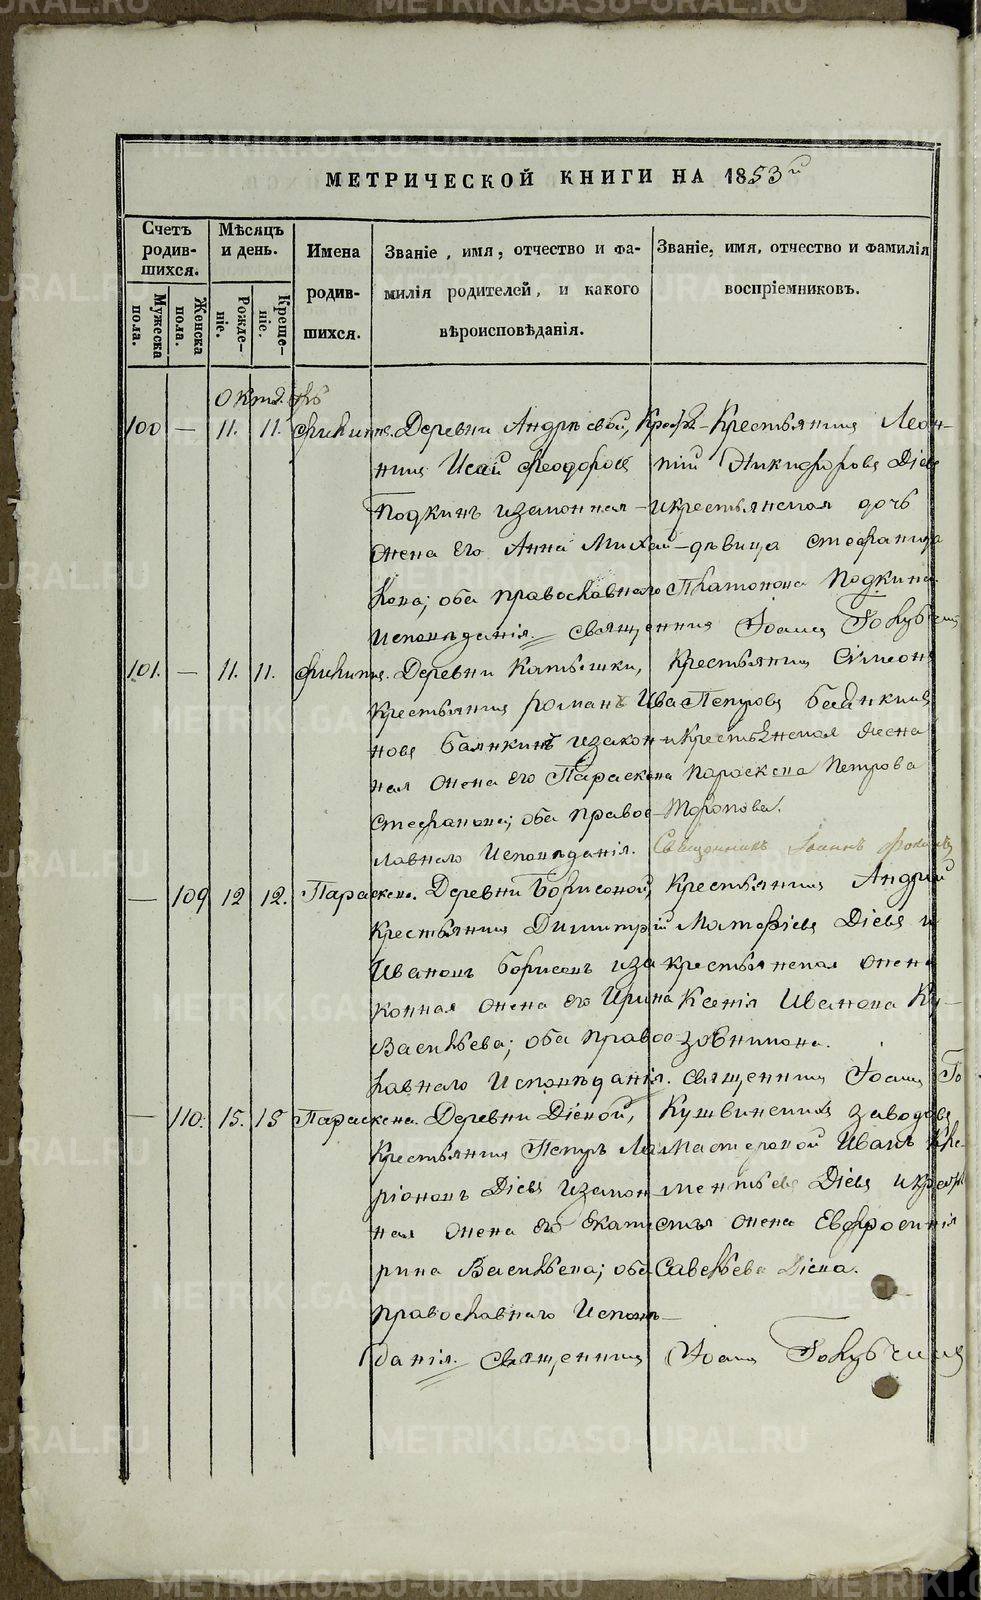 МЕТРИЧЕСКОЙ КНИГИ НА 1853й
Счетъ родив-шихся.
Мужеска пола.
Женска пола.
Мѣсяцъ и день.
Рожде-ніе.
Креще-ніе.
Имена родив-шихся.
Званіе, имя, отчество и фа-
милія родителей, и какого
вѣроисповѣданія.
Званіе, имя, отчество и фамилія
воспріемниковъ.
100 — 11. 11. Филиппъ. Деревни Андрѣевой, Крестья-
нинъ Исай Феодоровъ
Подкинъ изаконная
жена его Анна Михай-
лова; оба православнаго
Исповѣданія. Священникъ Іоаннъ Голубчик
Крестьянинъ Леон-
тій Никифоровъ Діевъ
икрестьянская дочь
дѣвица Стефанида
Платонова Подкина.
101. — 11. 11. Филиппъ. Деревни Катышки,
Крестьянинъ Романъ Ива
новъ Баянкинъ изакон-
ная жена его Параскева
Стефанова; оба право-
лавнаго Исповѣданія.
Крестьянинъ Симеонъ
Петровъ Баянкинъ
икрестьянская жена
Параскева Петрова
Торопова.
Священникъ Іоаннъ
— 109 12 12. Параскева. Деревни Борисовой,
Крестьянинъ Димитрій
Ивановъ Борисовъ иза
конная жена его Ирина
Васильева; оба правос-
лавнаго Исповѣданія. Священникъ Іоаннъ Го
Крестьянинъ Андрей
Матфіевъ Діевъ и
крестьянская жена
Ксенія Иванова Ку-
зовникова.
— 110. 15. 15 Параскева. Деревни Діевой,
Крестьянинъ Петръ Ла
ріоновъ Діевъ изакон
ная жена его Екате
рина Васильева; оба
православнаго Исповѣ-
данія. Священникъ Іоаннъ Голубчикъ
Кушвинскихъ заводовъ
Мастеровой Иванъ Кле-
ментьевъ Діевъ икресть
жена Евфросинія
Савельева Діева.